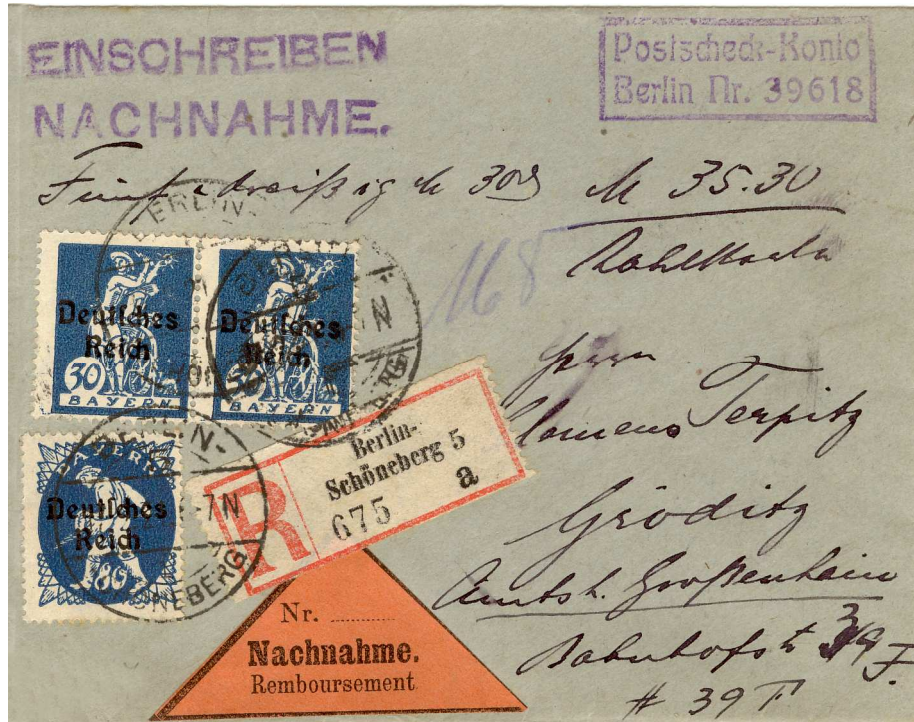 EINSCHREIBEN
NACHNAHME.
Postscheck-Konto
Berlin Nr. 39618
Fünfundreißig M 30 M 35.30
Herrn
Clemens Terpitz
Gröditz
Amtsh. Großenhain
Bahnhofstr
# 39 F
168
Deutsches
Reich
30
BAYERN
Deutsches
Reich
30
BAYERN
BERLIN
BAYERN
Deutsches
Reich
80
BERLIN.
-7N
NEBERG
R
Berlin-
Schöneberg 5
675 a
Nr.
Nachnahme.
Remboursement